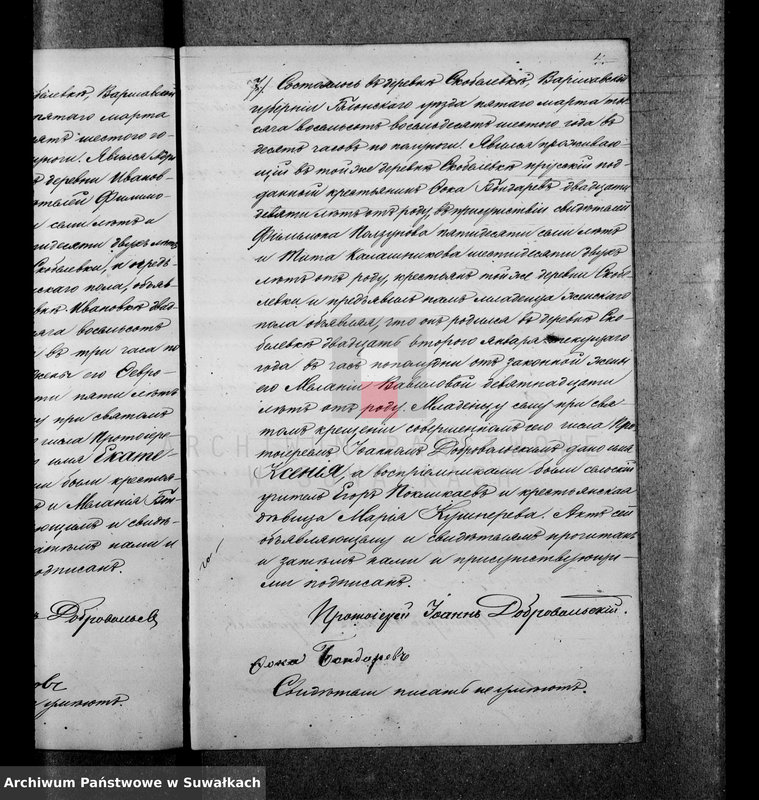 балевкѣ, Варшавской
пятаго марта
шестаго го-
полуночи. Явился
деревни Иванов-
Филимо-
семи лѣтъ и
двухъ лѣтъ
Скобелевки, и
скаго пола, объяв-
Ивановкѣ двад-
восемьсотъ
въ три часа по
его Февро-
ти пяти лѣтъ
при святомъ
числа Протоіере-
имя Екате-
были крестья-
и Меланія
и свидѣ-
нами и
подписанъ.
Добровольск
умѣютъ.
7/ Состоялось въ деревнѣ Скобелевкѣ, Варшавской
губерніи Блонскаго уѣзда пятаго марта ты-
сяча восемьсотъ восемьдесятъ шестого года въ
десять часовъ по полуночи. Явился проживаю-
щій въ той же деревнѣ Скобелевкѣ прусскій под-
данный крестьянинъ Ѳока Бондаревъ двадцати
девяти лѣтъ отъ роду, въ присутствіи свидѣтелей
Филимона Ползунова пятидесяти семи лѣтъ
и Тита Калашникова шестидесяти двухъ
лѣтъ отъ роду, крестьянъ той же деревни Скобе-
левки и предъявилъ намъ младенца женскаго
пола объявляя, что онъ родился въ деревнѣ Ско-
белевкѣ двадцать второго Января текущаго
года въ часъ пополудни отъ законной жены
его Меланіи Вавиловой девятнадцати
лѣтъ отъ роду. Младенцу сему при свя-
томъ крещеніи совершенномъ сего числа Про-
тоіереемъ Іоанномъ Добровольскимъ дано имя
Ксенія, а воспріемниками были сельскій
учитель Егоръ Поклікаевъ и крестьянская
дѣвица Марія Кушнерева. Актъ сей
объявляющему и свидѣтелямъ прочитанъ
и затѣмъ нами и присутствующи-
ми подписанъ.
Протоіерей Іоаннъ Добровольскій.
Ѳока Бондаревъ
Свидѣтели писать не умѣютъ.
ARCHIWUM PAŃSTWOWE
W SUWAŁKACH
Archiwum Państwowe w Suwałkach